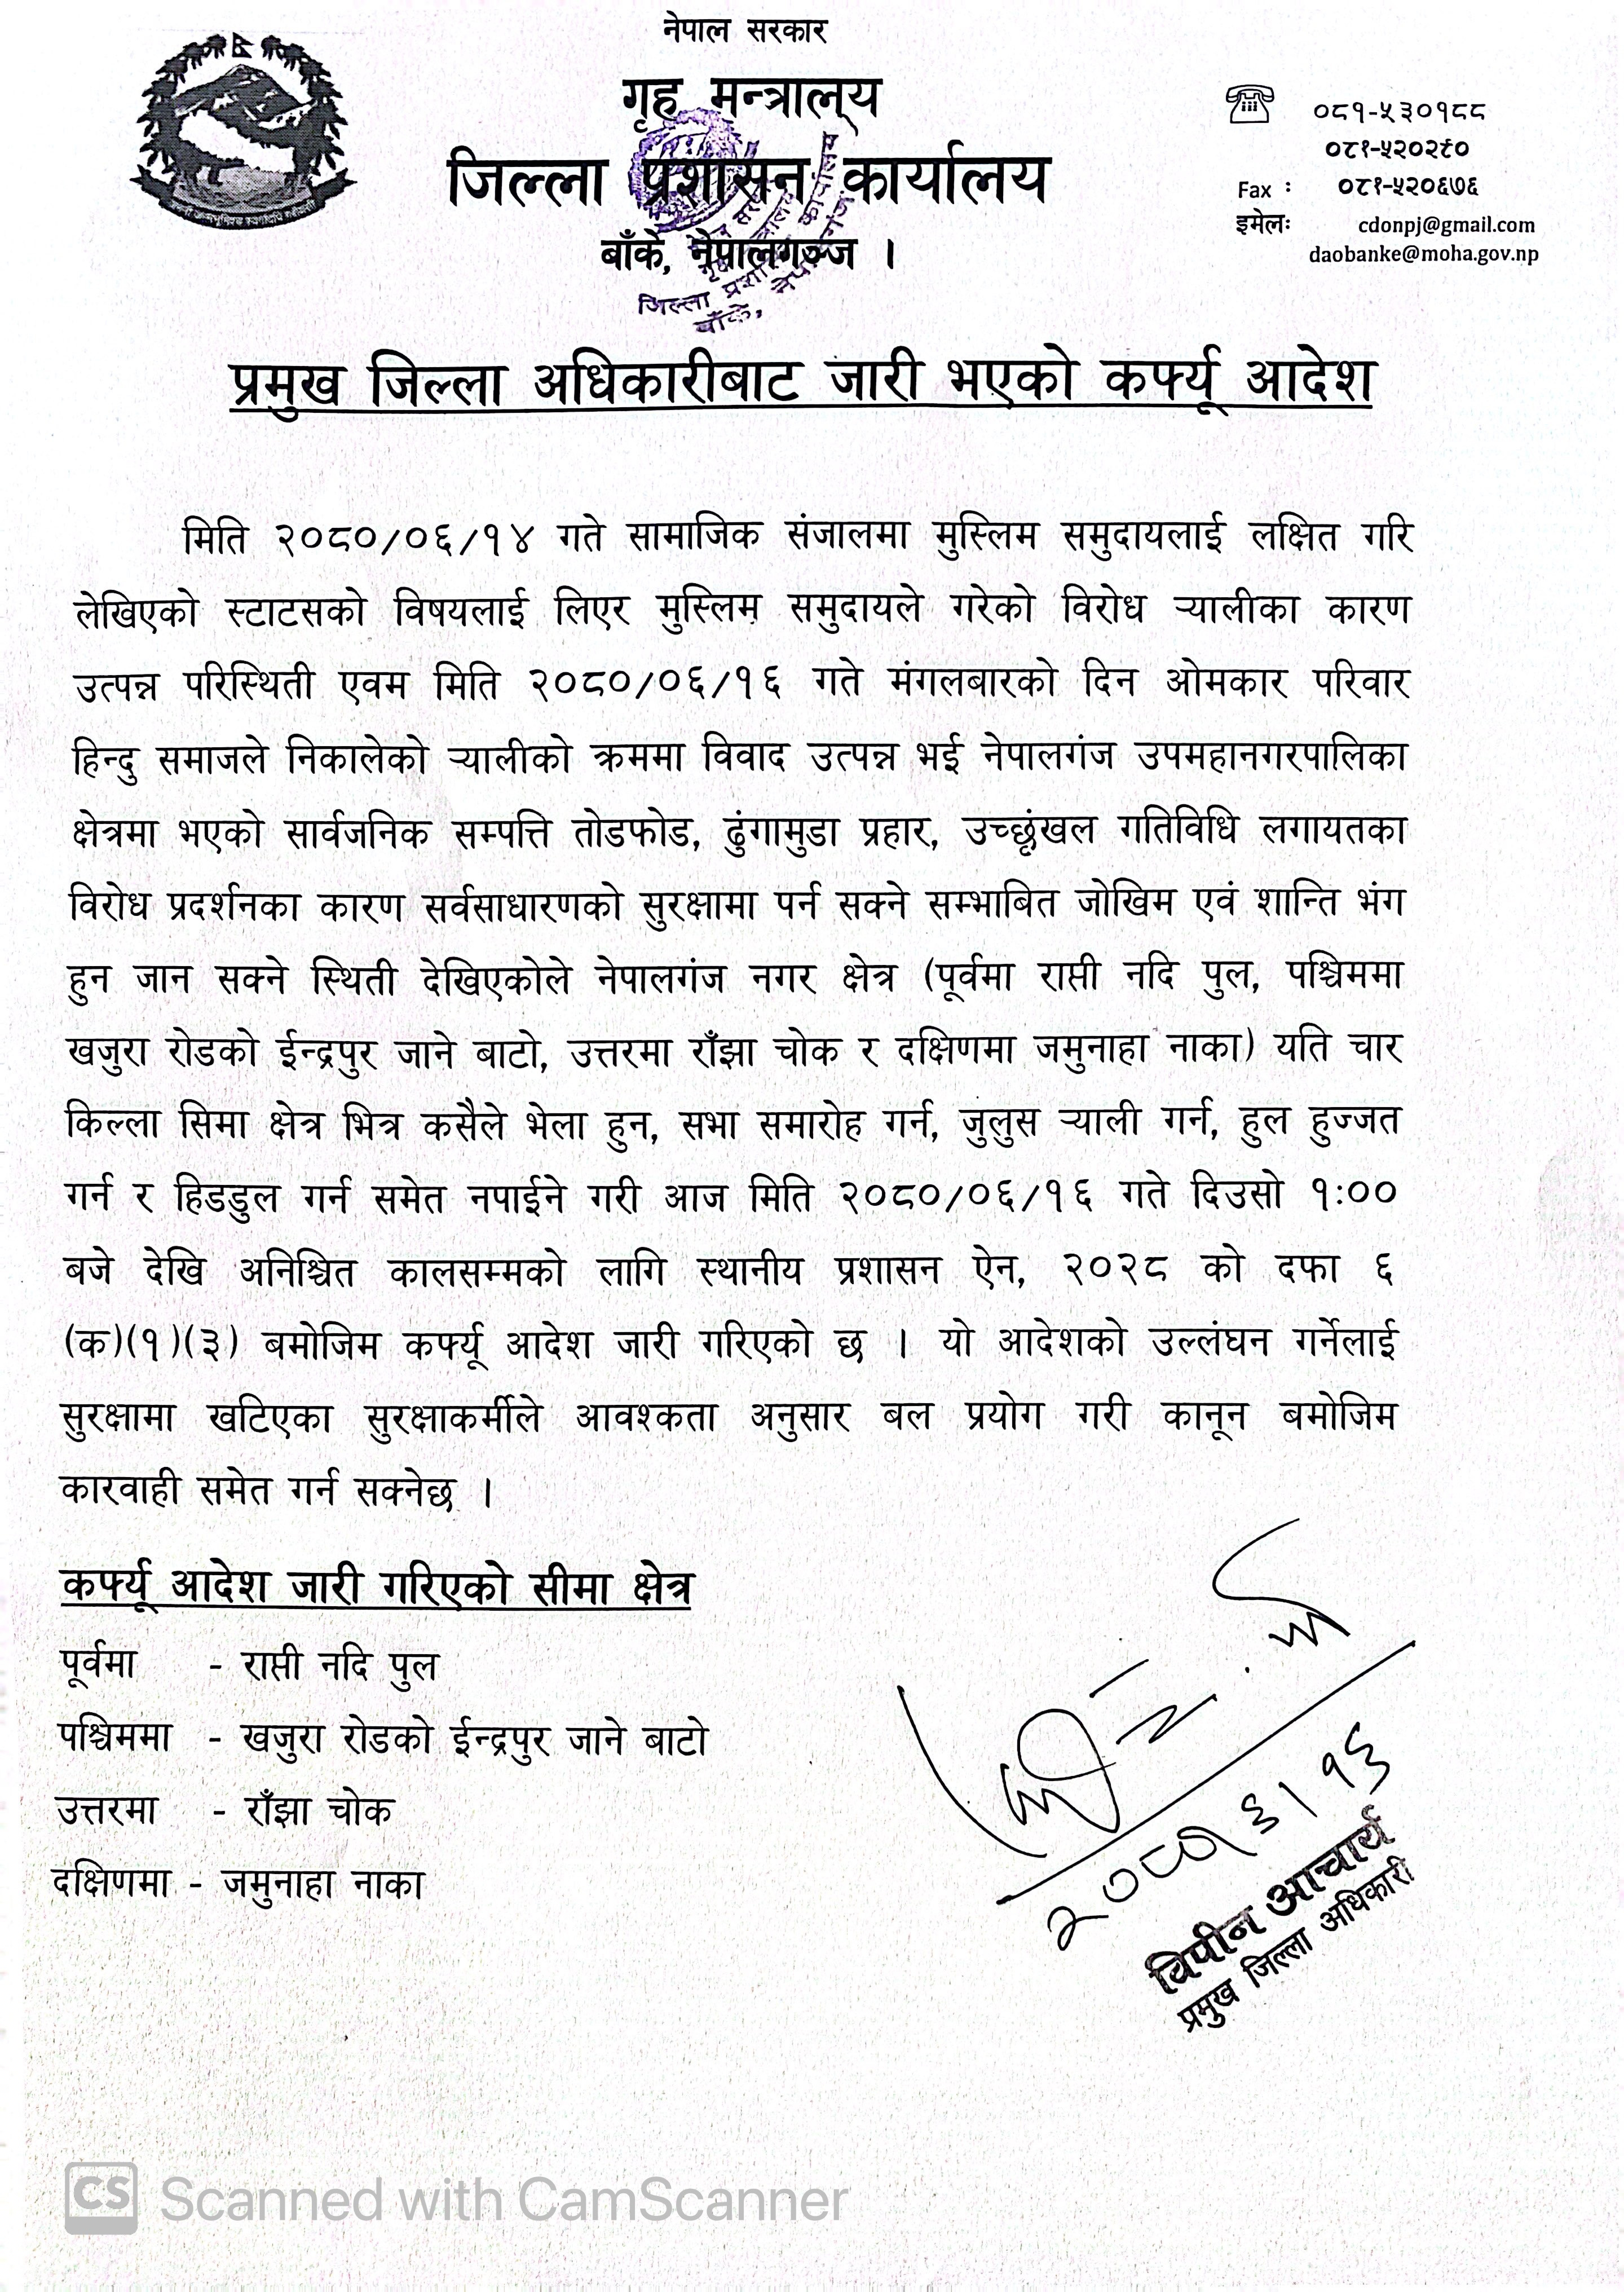 नेपाल सरकार
गृह मन्त्रालय
जिल्ला प्रशासन कार्यालय
बाँके, नेपालगञ्ज ।
०८१-५३०१८८
०८१-५२०२९०
Fax : ०८१-५२०६७६
इमेलः cdonpj@gmail.com
daobanke@moha.gov.np
जिल्ला प्रशासन कार्यालय
बाँके,
प्रमुख जिल्ला अधिकारीबाट जारी भएको कर्फ्यू आदेश
मिति २०८०/०६/१४ गते सामाजिक संजालमा मुस्लिम समुदायलाई लक्षित गरि
लेखिएको स्टाटसको विषयलाई लिएर मुस्लिम समुदायले गरेको विरोध र्‍यालीका कारण
उत्पन्न परिस्थिती एवम मिति २०८०/०६/१६ गते मंगलबारको दिन ओमकार परिवार
हिन्दु समाजले निकालेको र्‍यालीको क्रममा विवाद उत्पन्न भई नेपालगंज उपमहानगरपालिका
क्षेत्रमा भएको सार्वजनिक सम्पत्ति तोडफोड, ढुंगामुडा प्रहार, उच्छृंखल गतिविधि लगायतका
विरोध प्रदर्शनका कारण सर्वसाधारणको सुरक्षामा पर्न सक्ने सम्भाबित जोखिम एवं शान्ति भंग
हुन जान सक्ने स्थिती देखिएकोले नेपालगंज नगर क्षेत्र (पूर्वमा राप्ती नदि पुल, पश्चिममा
खजुरा रोडको ईन्द्रपुर जाने बाटो, उत्तरमा राँझा चोक र दक्षिणमा जमुनाहा नाका) यति चार
किल्ला सिमा क्षेत्र भित्र कसैले भेला हुन, सभा समारोह गर्न, जुलुस र्‍याली गर्न, हुल हुज्जत
गर्न र हिडडुल गर्न समेत नपाईने गरी आज मिति २०८०/०६/१६ गते दिउसो १:००
बजे देखि अनिश्चित कालसम्मको लागि स्थानीय प्रशासन ऐन, २०२८ को दफा ६
(क)(१)(३) बमोजिम कर्फ्यू आदेश जारी गरिएको छ । यो आदेशको उल्लंघन गर्नेलाई
सुरक्षामा खटिएका सुरक्षाकर्मीले आवश्कता अनुसार बल प्रयोग गरी कानून बमोजिम
कारवाही समेत गर्न सक्नेछ ।
कर्फ्यू आदेश जारी गरिएको सीमा क्षेत्र
पूर्वमा - राप्ती नदि पुल
पश्चिममा - खजुरा रोडको ईन्द्रपुर जाने बाटो
उत्तरमा - राँझा चोक
दक्षिणमा - जमुनाहा नाका
२०८०।६।१६
विपीन आचार्य
प्रमुख जिल्ला अधिकारी
CS Scanned with CamScanner